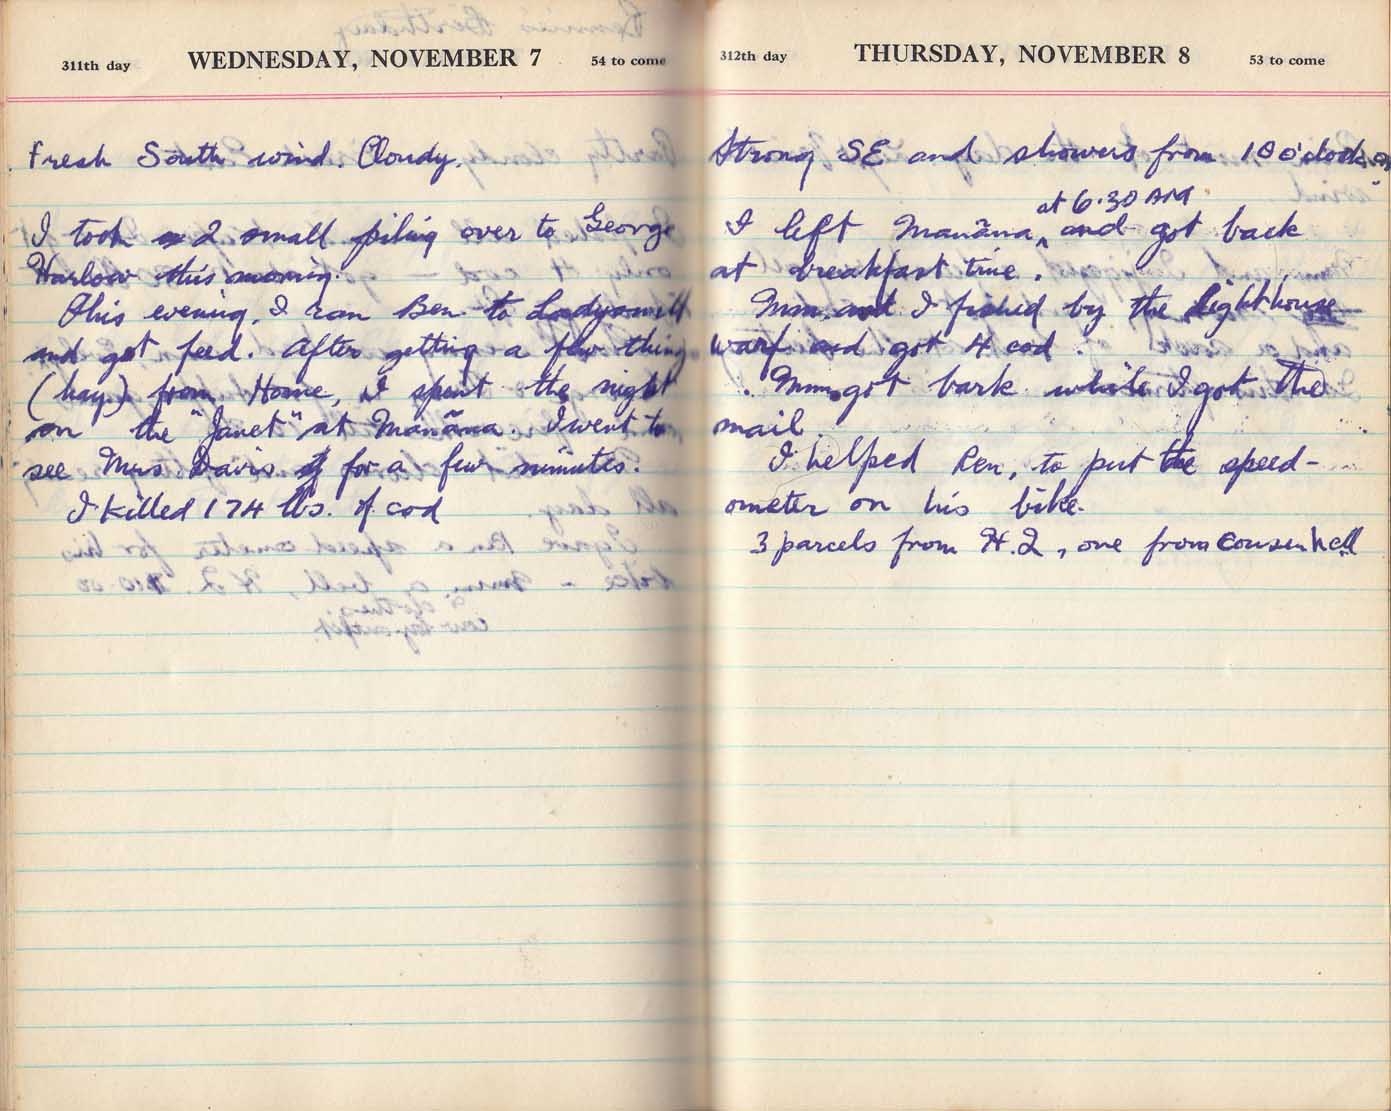 311th day WEDNESDAY, NOVEMBER 7 54 to come
Fresh South wind. Cloudy.
I took 2 small piling over to George
Harlow this morning.
This evening, I ran Ben to Ladysmith
and got feed. After getting a few things
(hay) from Home, I spent the night
on the "Janet" at Manãna. I went to
see Mrs Davis for a few minutes.
I killed 174 lbs. of cod
312th day THURSDAY, NOVEMBER 8 53 to come
Strong SE and showers from 10 o'clock on
at 6.30 AM
I left Manãna, and got back
at breakfast time.
Mm. and I fished by the lighthouse
warf and got 4 cod.
Mm got bark while I got the
mail.
I helped Ren, to put the speed-
ometer on his bike.
3 parcels from H.Q, one from